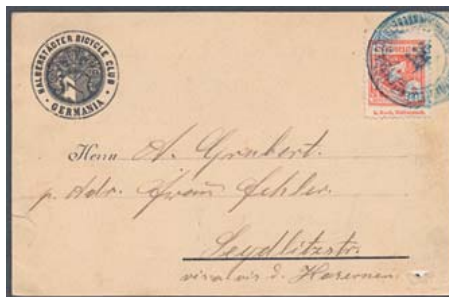 HALBERSTÄDTER BICYCLE CLUB
GERMANIA
Herrn A. Grubert.
p. Adr. Frau Ehler.
Seydlitzstr.
vis a vis d. Kasernen